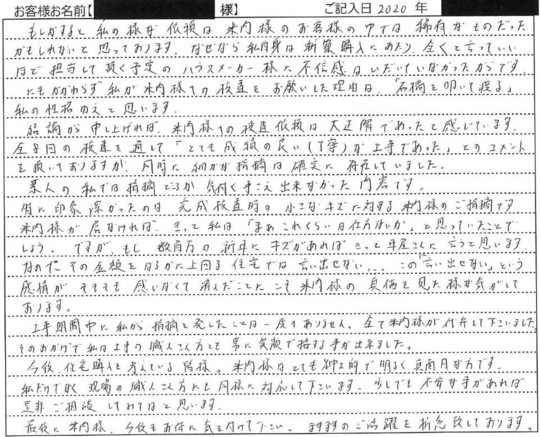 お客様お名前【 様】 ご記入日2020 年
もしかすると私の様な依頼は米内様のお客様の中では稀有なものだった
かもしれないと思っております。なぜなら私自身は新築購入にあたり全くと言っていい
ほで担当して頂く予定のハウスメーカー様に不信感はいだいていなかったからです
にもかかわらず私が米内様への検査をお願いした理由は、「石橋を叩いて渡る」
私の性格のえと思います。
結論から申し上げれば、米内様への検査依頼は大正解であったと感じています。
全8回の検査を通して「とても成績の良い(丁寧)が上手であった」とのコメント
を頂いておりますが、同時に細かな指摘は確実に存在していました。
素人の私では指摘どころか気付く事さえ出来なかった内容です。
特に印象深かったのは完成検査時の小さなキズに対する米内様のご指摘です
米内様が居なければ、きっと私は「まぁこれくらいは仕方ないか」と思っていたことで
しょう。ですが、もし数百万の新車にキズがあればきっと車屋さんに言うと思います
なのに、その金額をはるかに上回る住宅では言い出せない… この「言い出せない」という
感情がそもそも感じなくて済んだことこそ米内様の真価を見た様な気がして
おります。
工事期間中に私から指摘を発したことは一度もありません。全て米内様が代弁して下さいました
そのおかげで私は工事の職人さん方とも常に笑顔で接する事が出来ました。
今後、住宅購入を考えている皆様。米内様はとても紳士的で明るく真面目な方です。
私だけで無く現場の職人さん方にも同様に対応して下さいます。少しでも不安な事があれば
是非ご相談してみてはと思います。
最後に米内様、今後もお体に気を付けて下さい。ますますのご活躍を祈念致しております。